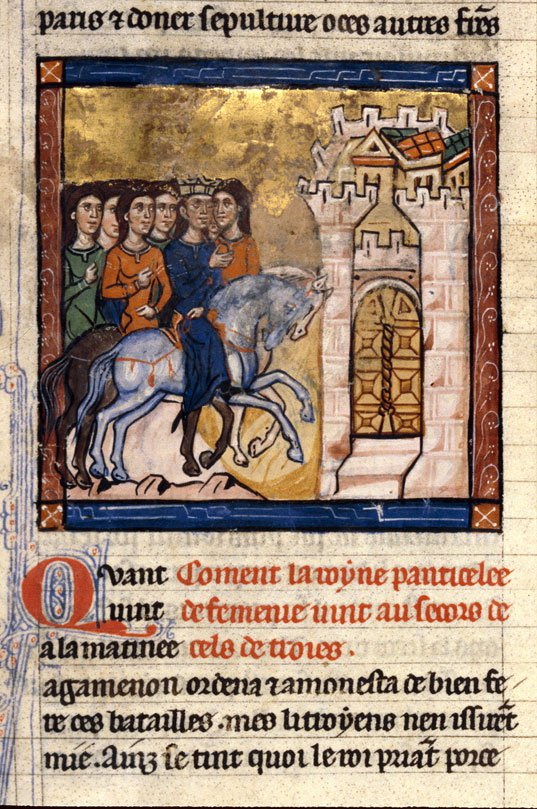 paris ⁊ doner sepulture oces autres fr̃es
Qvant Coment la royne panticelee
uint de femenie uint au secors de
ala matinee cels de troies .
agamenon ordena ⁊ amonesta de bien fe/
re ces batailles . mes li troyens nen issirẽt
mie . Ainz se tint quoi le roi priãt porce